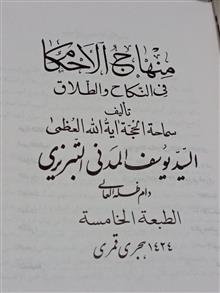 منهاج الاحكام
في النكاح والطلاق
تأليف
سماحة الحجة آية الله العظمى
السيد يوسف المدني التبريزي
دام ظله العالي
الطبعة الخامسة
١٤٢٤ هجري قمري